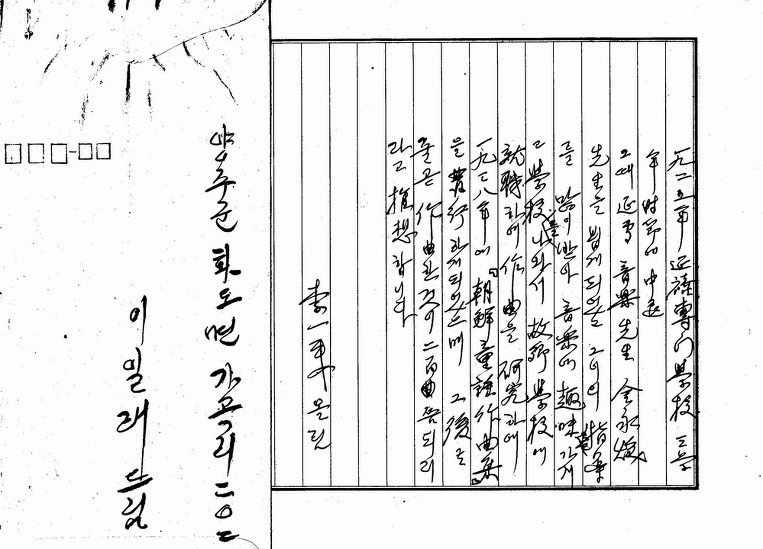 一九二五年 延禧專門學校 三學
年 時節에 中退
그때 延專 音樂先生 金永煥
先生을 뵙게되었는 그이의 指導
를 많이 받아 音樂에 趣味를 가지
고 學校를 나와서 故鄕 學校에
就職하여 作曲을 硏究하여
一九三八年에『朝鮮童謠作曲集』
을 發行하게되었으며 그 後로
줄곧 作曲한것이 二百曲쯤 되리
라고 推想합니다
李一來 올림
양주군 화도면 가곡리 二〇二
이일래 드림